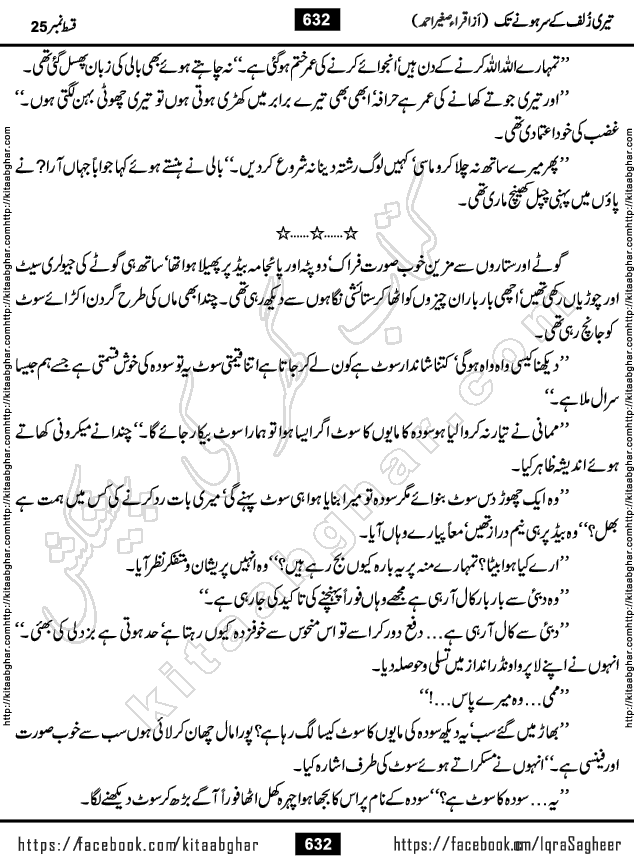 تیری زُلف کے سر ہونے تک (از اقراء صغیر احمد) 632 قسط نمبر 25
’’تمہارے اللہ اللہ کرنے کے دن ہیں‘ انجوائے کرنے کی عمر ختم ہو گئی ہے۔‘‘ نہ چاہتے ہوئے بھی بالی کی زبان پھسل گئی تھی۔
’’اور تیری جوتے کھانے کی عمر ہے حرافہ‘ ابھی بھی تیرے برابر میں کھڑی ہوتی ہوں تو تیری چھوٹی بہن لگتی ہوں۔‘‘
غضب کی خود اعتمادی تھی۔
’’پھر میرے ساتھ نہ چلا کرو ماسی‘ کہیں لوگ رشتہ دینا نہ شروع کر دیں۔‘‘ بالی نے ہنستے ہوئے کہا جواباً جہاں آرا? نے
پاؤں میں پہنی چپل کھینچ ماری تھی۔
☆......☆......☆
گوٹے اور ستاروں سے مزین خوب صورت فراک‘ دوپٹہ اور پائجامہ بیڈ پر پھیلا ہوا تھا‘ ساتھ ہی گوٹے کی جیولری سیٹ
اور چوڑیاں رکھی تھیں‘ اچھی بار بار ان چیزوں کو اٹھا کر ستائشی نگاہوں سے دیکھ رہی تھی۔ چندا بھی ماں کی طرح گردن اکڑائے سوٹ
کو جانچ رہی تھی۔
’’دیکھنا کیسی واہ واہ ہو گی‘ کتنا شاندار سوٹ ہے کون لے کر جاتا ہے اتنا قیمتی سوٹ یہ تو سودہ کی خوش قسمتی ہے جسے ہم جیسا
سرال ملا ہے۔‘‘
’’ممانی نے تیار نہ کروا لیا ہو سودہ کا مایوں کا سوٹ اگر ایسا ہوا تو ہمارا سوٹ بیکار جائے گا۔‘‘ چندا نے میکرونی کھاتے
ہوئے اندیشہ ظاہر کیا۔
’’وہ ایک چھوڑ دس سوٹ بنوائے مگر سودہ تو میرا بنایا ہوا ہی سوٹ پہنے گی‘ میری بات رد کرنے کی کس میں ہمت ہے
بھلا؟‘‘ وہ بیڈ پر ہی نیم دراز تھیں‘ معاً پیارے وہاں آیا۔
’’ارے کیا ہوا بیٹا؟ تمہارے منہ پر یہ بارہ کیوں بج رہے ہیں؟‘‘ وہ انہیں پریشان و متفکر نظر آیا۔
’’وہ دبئی سے بار بار کال آرہی ہے مجھے وہاں فوراً پہنچنے کی تاکید کی جا رہی ہے۔‘‘
’’دبئی سے کال آرہی ہے... دفع دور کرا سے تو اس منحوس سے خوفزدہ کیوں رہتا ہے‘ حد ہوتی ہے بزدلی کی بھئی۔‘‘
انہوں نے اپنے لاپروا و انڈر انداز میں تسلی و حوصلہ دیا۔
’’ممی... وہ میرے پاس...!‘‘
’’بھاڑ میں گئے سب‘ یہ دیکھ سودہ کی مایوں کا سوٹ کیسا لگ رہا ہے؟ پورا مال چھان کر لائی ہوں سب سے خوب صورت
اور فینسی ہے۔‘‘ انہوں نے مسکراتے ہوئے سوٹ کی طرف اشارہ کیا۔
’’یہ... سودہ کا سوٹ ہے؟‘‘ سودہ کے نام پر اس کا بجھا ہوا چہرہ کھل اٹھا فوراً آگے بڑھ کر سوٹ دیکھنے لگا۔
https://facebook.com/kitaabghar 632 https://facebook.com/IqraSagheer
http://kitaabghar.com
کتاب گھر کی پیشکش
kitaabghar.com